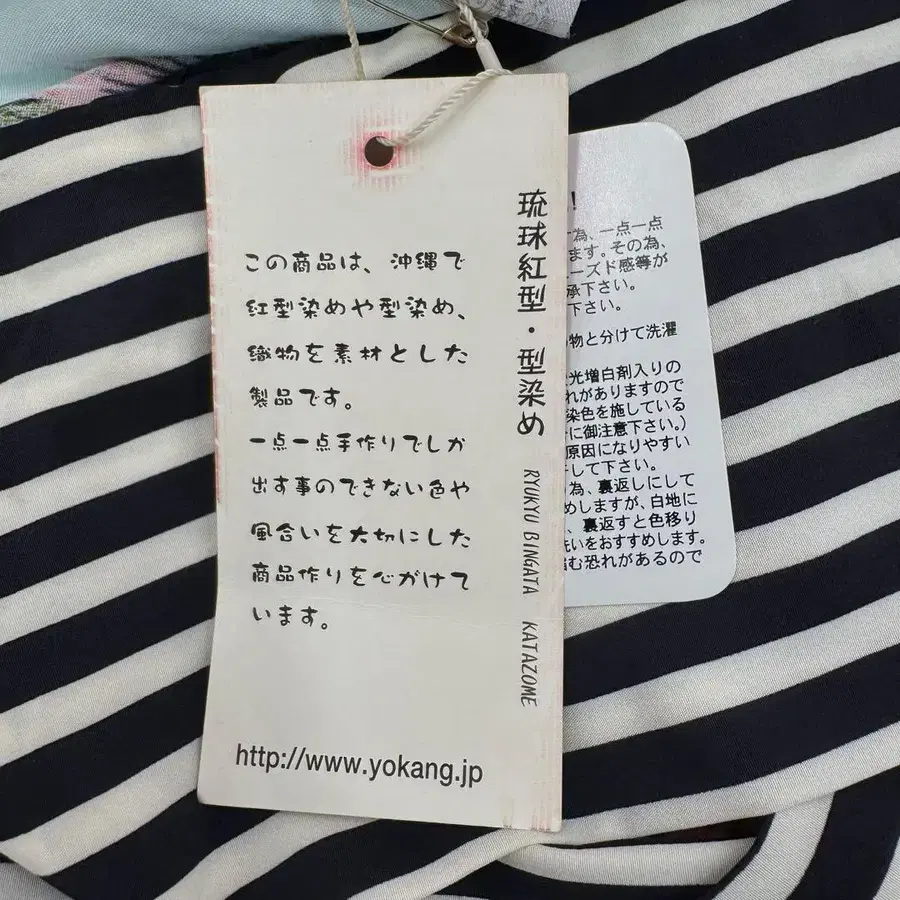 琉球紅型・型染め RYUKYU BINGATA KATAZOME
この商品は、沖縄で
紅型染めや型染め、
織物を素材とした
製品です。
一点一点手作りでしか
出す事のできない色や
風合いを大切にした
商品作りを心がけて
います。
http://www.yokang.jp
!
為、一点一点
ます。その為、
ーズド感等が
承下さい。
下さい。
物と分けて洗濯
光増白剤入りの
れがありますので
染色を施している
に御注意下さい。)
原因になりやすい
して下さい。
為、裏返しにして
めしますが、白地に
、裏返すと色移り
洗いをおすすめします。
む恐れがあるので